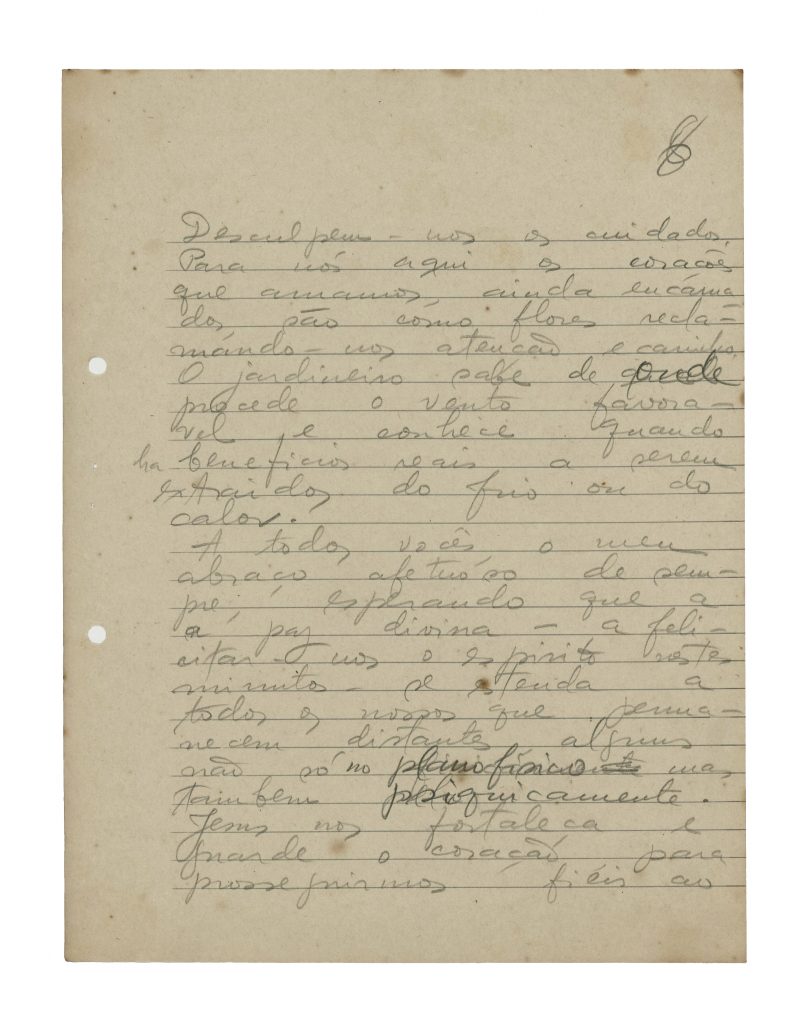 8
Desculpem-nos os cuidados.
Para nós aqui os corações
que amamos, ainda encarna
dos, são como flores recla-
mando-nos atenção e carinho.
O jardineiro sabe de onde
procede o vento favora-
vel e conhece quando
ha beneficios reais a serem
extraidos do frio ou do
calor.
A todos vocês o meu
abraço afetuoso de sem-
pre, esperando que a
a paz divina - a feli-
citar-nos o espirito nestes
minutos - se estenda a
todos os nossos que perma-
necem distantes alguns
não só no plano físico mas
tambem psiquicamente.
Jesus nos fortaleça e
guarde o coração para
prosseguirmos fiéis ao